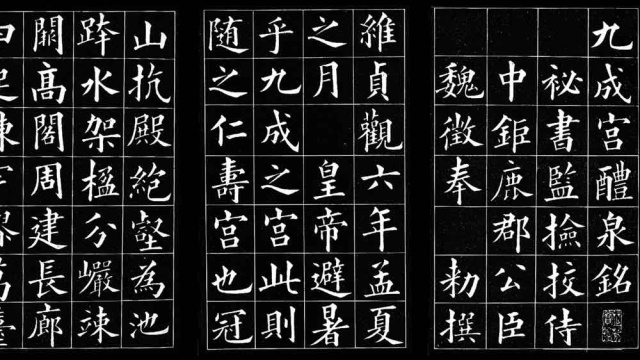 九成宮醴泉銘
祕書監撿挍侍
中鉅鹿郡公臣
魏徵奉 勑撰
維貞觀六年孟夏
之月 皇帝避暑
乎九成之宮此則
随之仁壽宮也冠
山抗殿絶壑為池
跨水架楹分巖竦
闕高閣周建長廊